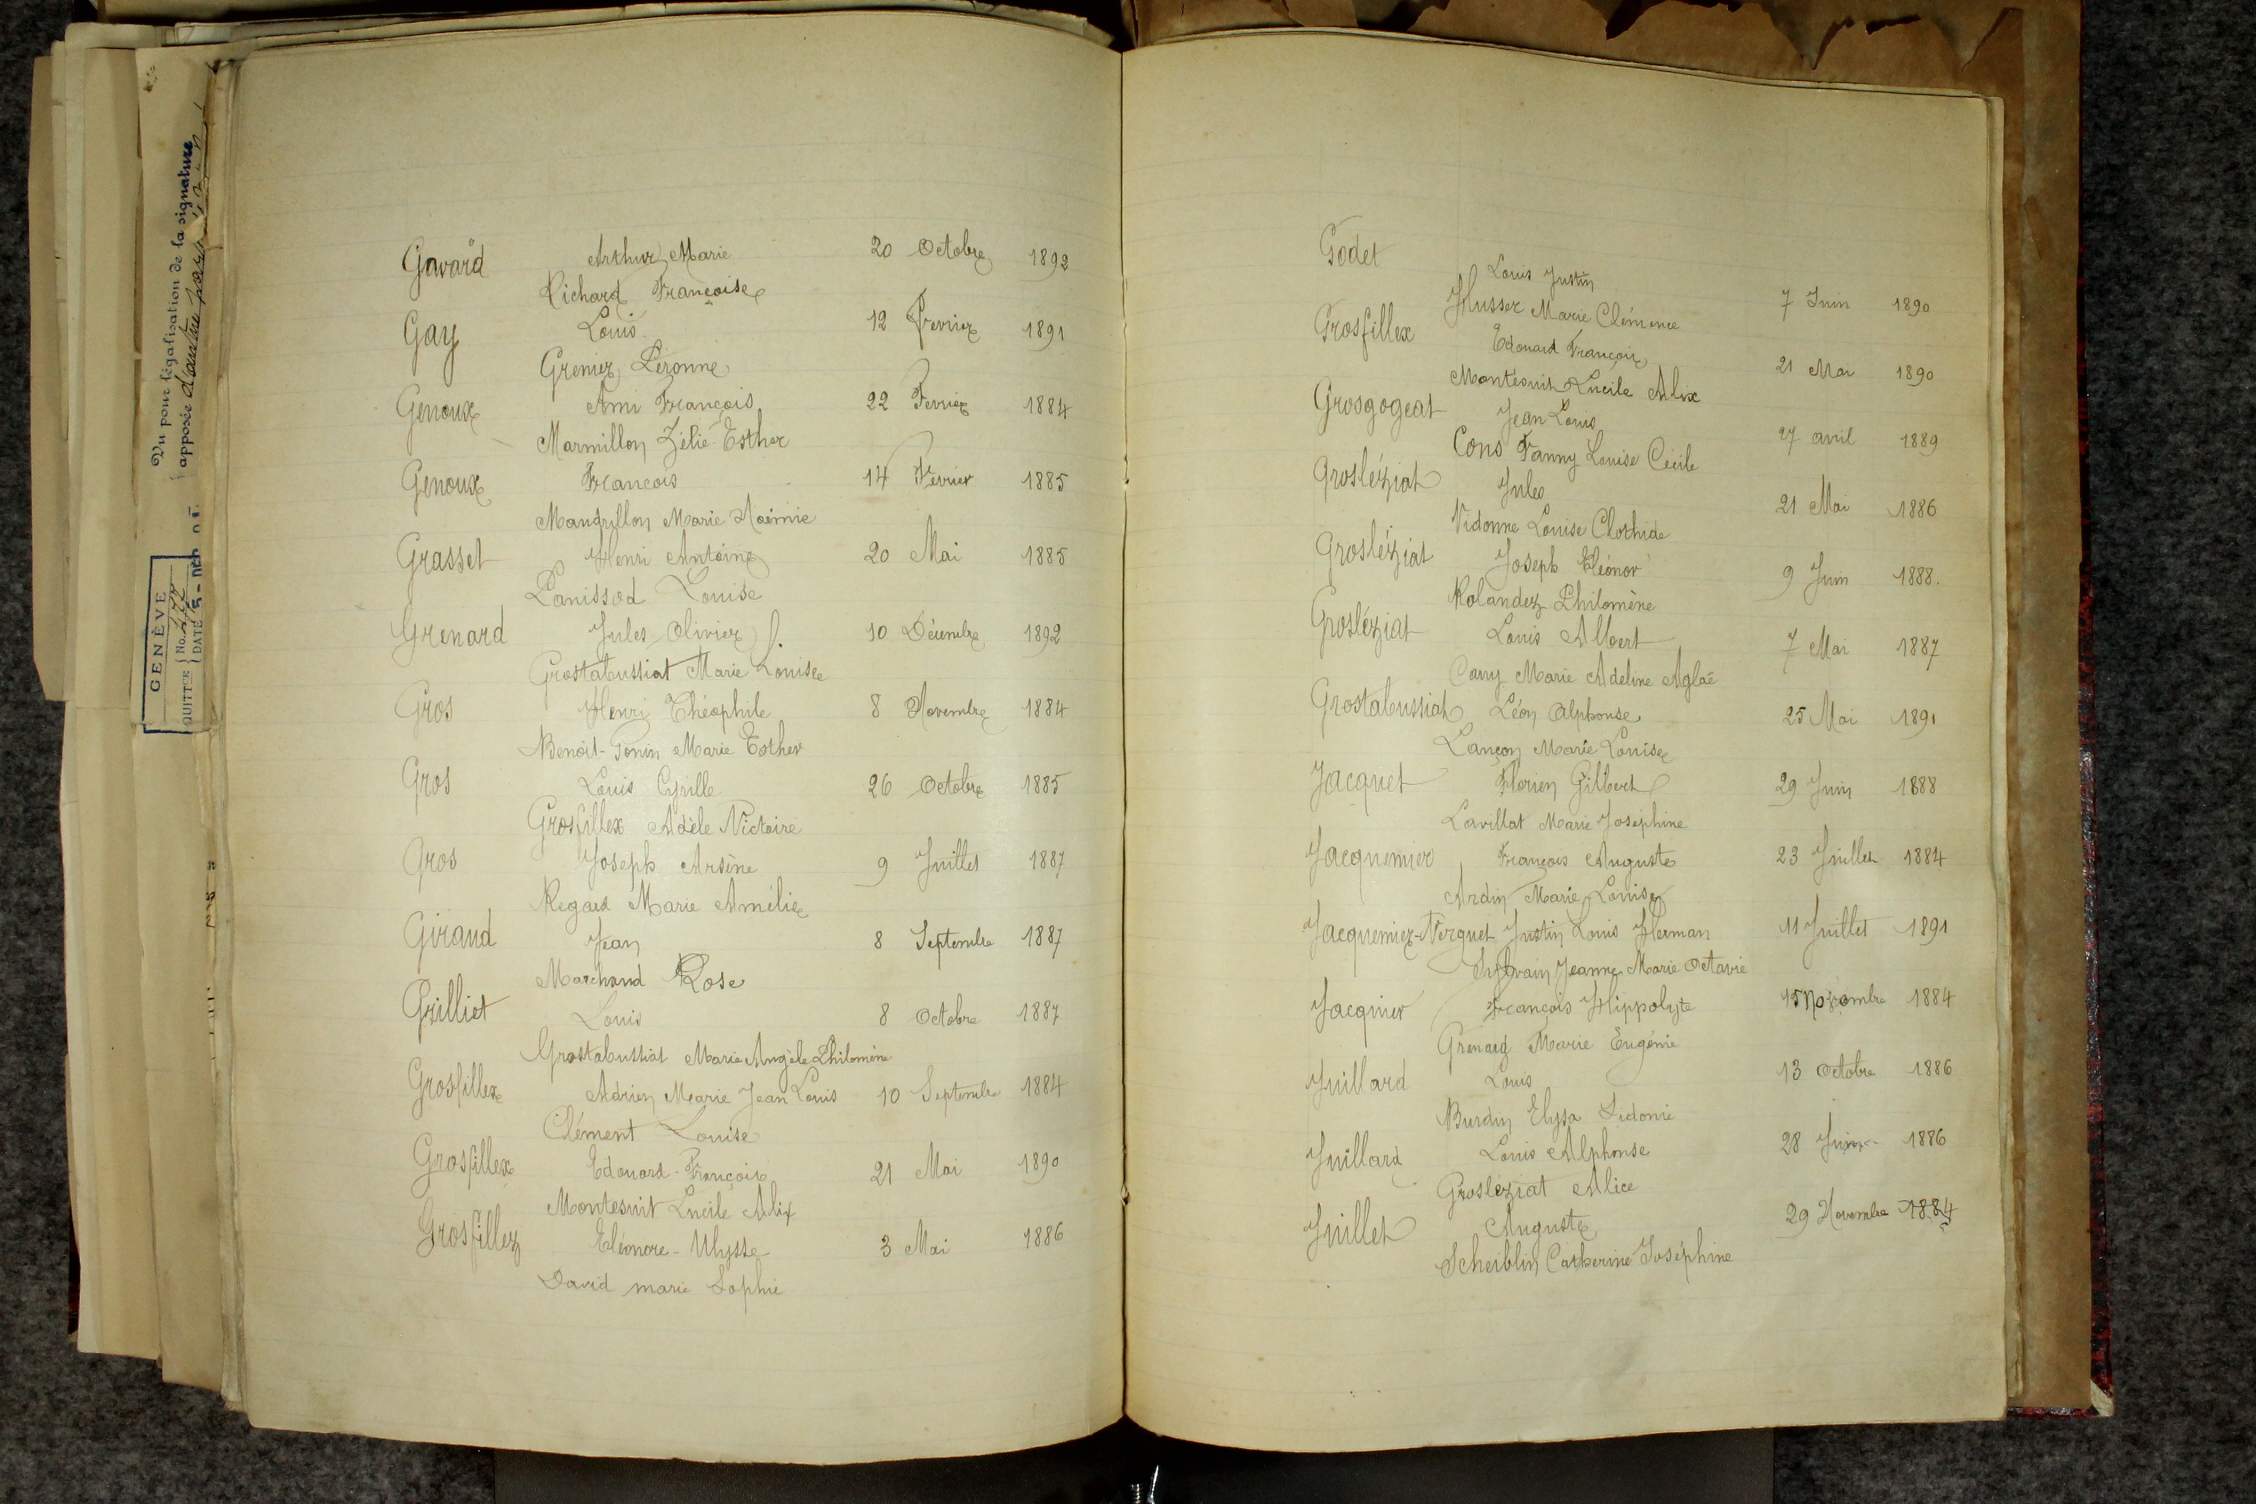 Vu pour légalisation de la signature
apposée d'autre part
GENÈVE
QUITTCE No.
DATE
Gavard Arthur Marie 20 Octobre 1892
Richard Françoise
Gay Louis 12 Fevrier 1891
Grenier Peronne
Genoux Ami François 22 Fevrier 1884
Marmillon Zélie Esther
Genoux François 14 Février 1885
Mandrillon Marie Noémie
Grasset Henri Antoine 20 Mai 1885
Panissod Louise
Grenard Jules Olivier 10 Décembre 1892
Grostabussiat Marie Louise
Gros Henri Théophile 8 Novembre 1884
Benoit-Gonin Marie Esther
Gros Louis Cyrille 26 Octobre 1885
Grosfillex Adèle Victoire
Gros Joseph Arsène 9 Juillet 1887
Regard Marie Amélie
Giraud Jean 8 Septembre 1887
Marchand Rose
Grilliet Louis 8 Octobre 1887
Grostabussiat Marie Angèle Philomène
Grosfillex Adrien Marie Jean Louis 10 Septembre 1884
Clément Louise
Grosfillex Edouard-François 21 Mai 1890
Montesuit Lucile Alix
Grosfillez Eléonore-Ulysse 3 Mai 1886
David marie Sophie
Godet Louis Justin 7 Juin 1890
Husser Marie Clémence
Grosfillex Edouard François 21 Mai 1890
Montesuit Lucile Alix
Grosgogeat Jean Louis 27 avril 1889
Cons Fanny Louise Cécile
Grosléziat Jules 21 Mai 1886
Vidonne Louise Clothide
Grosléziat Joseph Eléonor 9 Juin 1888.
Rolandez Philomène
Grosléziat Louis Albert 7 Mai 1887
Carry Marie Adeline Aglaé
Grostabussiat Léon Alphonse 25 Mai 1891
Lançon Marie Louise
Jacquet Florien Gilbert 29 Juin 1888
Lavillat Marie Joséphine
Jacquemier François Auguste 23 Juillet 1884
Ardin Marie Louise
Jacquemier-Verguet Justin Louis Herman 11 Juillet 1891
Sylvain Jeanne Marie Octavie
Jacquier François Hippolyte 15 Novembre 1884
Grenard Marie Eugénie
Juillard Louis 13 Octobre 1886
Burdin Elysa Sidonie
Juillard Louis Alphonse 28 Juin 1886
Grosleziat Alice
Juillet Auguste 29 Novembre 1884
Scheiblin Catherine Joséphine